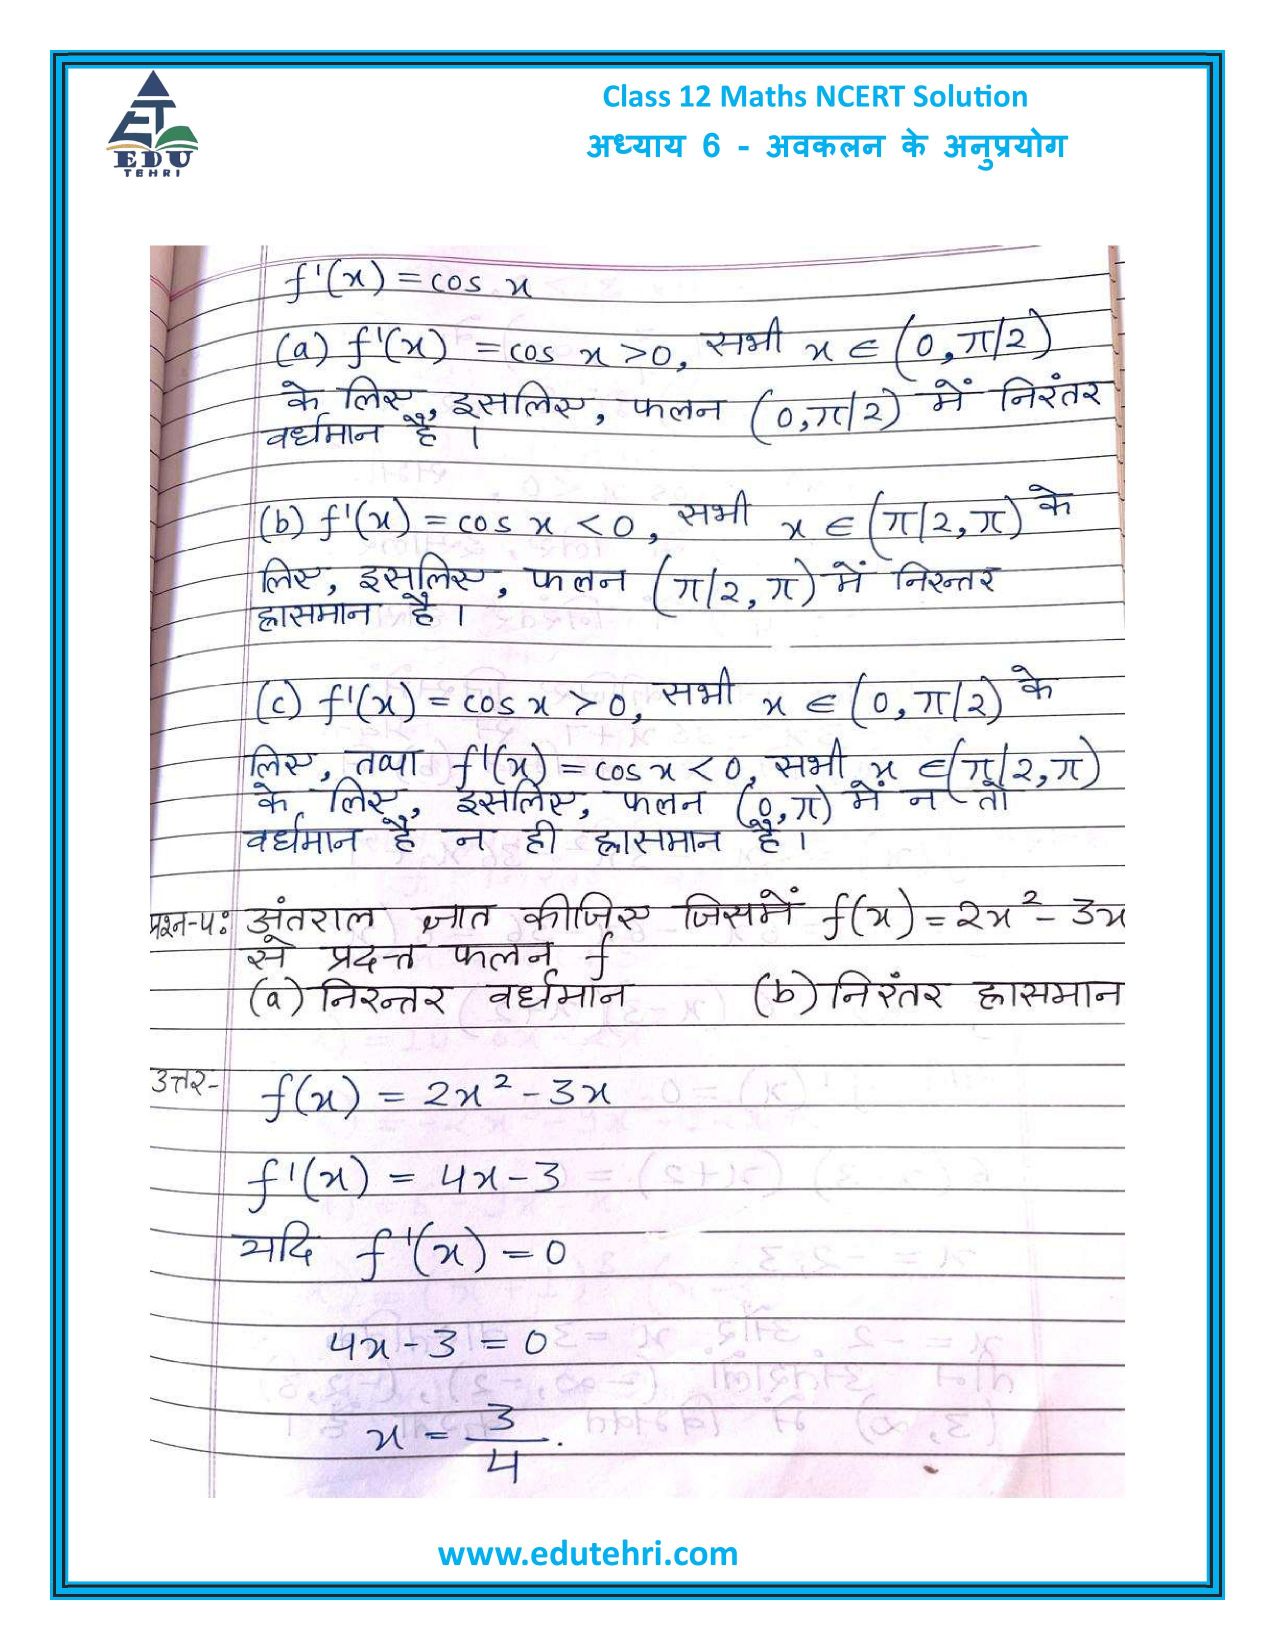 Class 12 Maths NCERT Solution
अध्याय 6 - अवकलन के अनुप्रयोग
ET
EDU
TEHRI
f'(x) = cos x
(a) f'(x) = cos x > 0, सभी x ∈ (0, π/2)
के लिए, इसलिए, फलन (0, π/2) में निरंतर
वर्धमान है ।
(b) f'(x) = cos x < 0, सभी x ∈ (π/2, π) के
लिए, इसलिए, फलन (π/2, π) में निरन्तर
ह्रासमान है ।
(c) f'(x) = cos x > 0, सभी x ∈ (0, π/2) के
लिए, तथा f'(x) = cos x < 0, सभी x ∈ (π/2, π)
के लिए, इसलिए, फलन (0, π) में न तो
वर्धमान है न ही ह्रासमान है ।
प्रश्न-4: अंतराल ज्ञात कीजिए जिसमें f(x) = 2x² - 3x
से प्रदत्त फलन f
(a) निरन्तर वर्धमान (b) निरंतर ह्रासमान
उत्तर- f(x) = 2x² - 3x
f'(x) = 4x - 3
यदि f'(x) = 0
4x - 3 = 0
x = 3/4.
www.edutehri.com